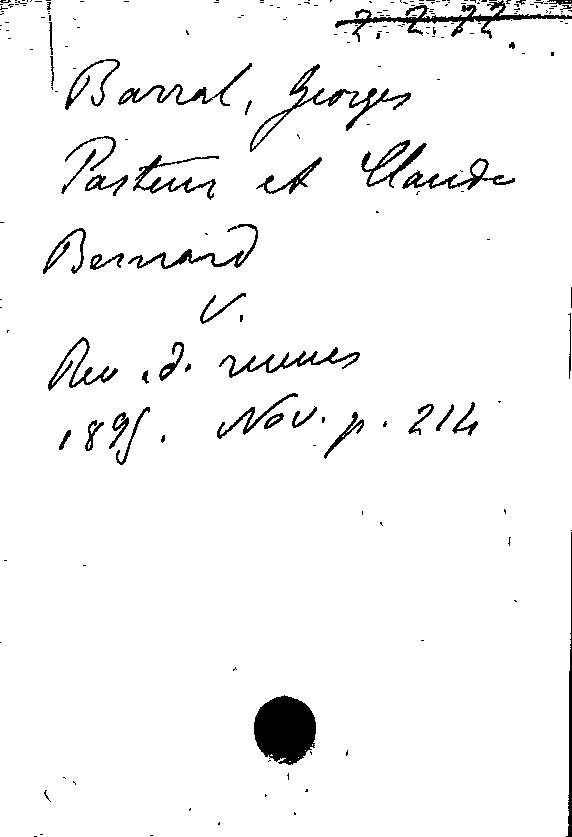 Barral, Georges
Pasteur et Claude
Bernard
V.
Rev. d. revues
1895. Nov. p. 214